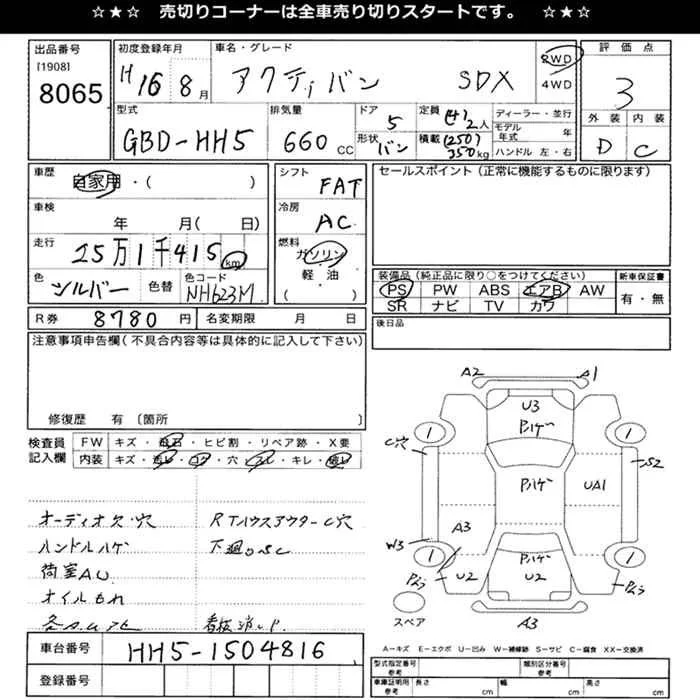 ☆★☆ 売切りコーナーは全車売り切りスタートです。 ☆★☆
出品番号
[1908]
8065
初度登録年月
H16 8月
車名・グレード
アクティバン SDX
2WD
4WD
評価点
3
外装 内装
D C
型式
GBD-HH5
排気量
660 CC
ドア
5
形状 バン
定員 (4) 2人
積載 (250) 350kg
ディーラー・並行
モデル年式 年
ハンドル 左・右
車歴
自家用・( )
車検
年 月( 日)
走行
25万1千415km
色
シルバー
色替
色コード
NH623M
シフト
FAT
冷房
AC
燃料
ガソリン
軽・油
( )
セールスポイント(正常に機能するものに限ります)
装備品(純正品に限り○をつけてください)
PS PW ABS エアB AW
SR ナビ TV カワ
新車保証書
有・無
R券 8780円 名変期限 月 日
後日品
注意事項申告欄(不具合内容等は具体的に記入して下さい)
修復歴 有〔箇所 〕
検査員記入欄
FW キズ・飛石・ヒビ割・リペア跡・X要
内装 キズ・汚レ・コゲ・穴・スレ・キレ・破レ
オーディオ欠・穴 RrハウスアウターC穴
ハンドルハゲ 下廻りSC
荷室AU
オイルもれ
看板消し
車台番号 HH5-1504816
登録番号
A2 A1
U3
Pハゲ
1 1
C穴
S2
Pハゲ
UA1
A3
W3
1 1
Pハゲ
U2 U2
A3
スペア
A=キズ E=エクボ U=凹み W=補修跡 S=サビ C=腐食 XX=交換済
型式指定番号 参考
類別区分番号 参考
車庫証明用 参考
長さ cm 幅 cm 高さ cm